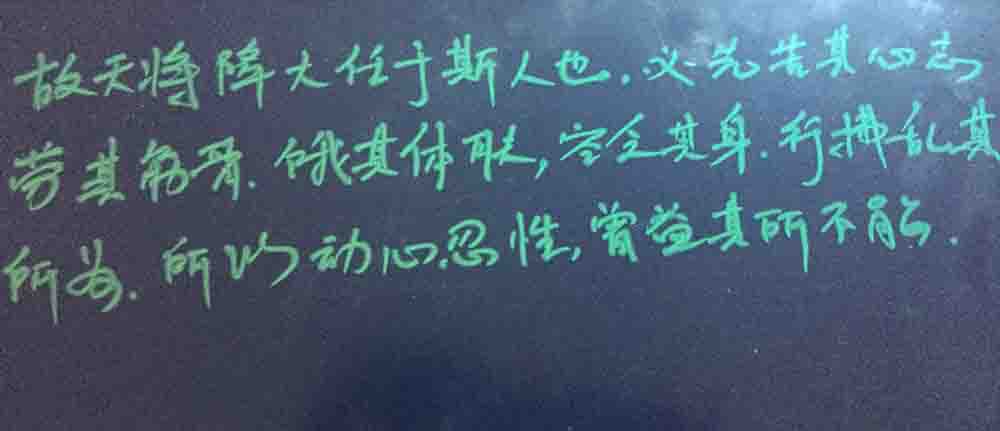 故天将降大任于斯人也,必先苦其心志
劳其筋骨.饿其体肤,空乏其身.行拂乱其
所为.所以动心忍性,曾益其所不能.